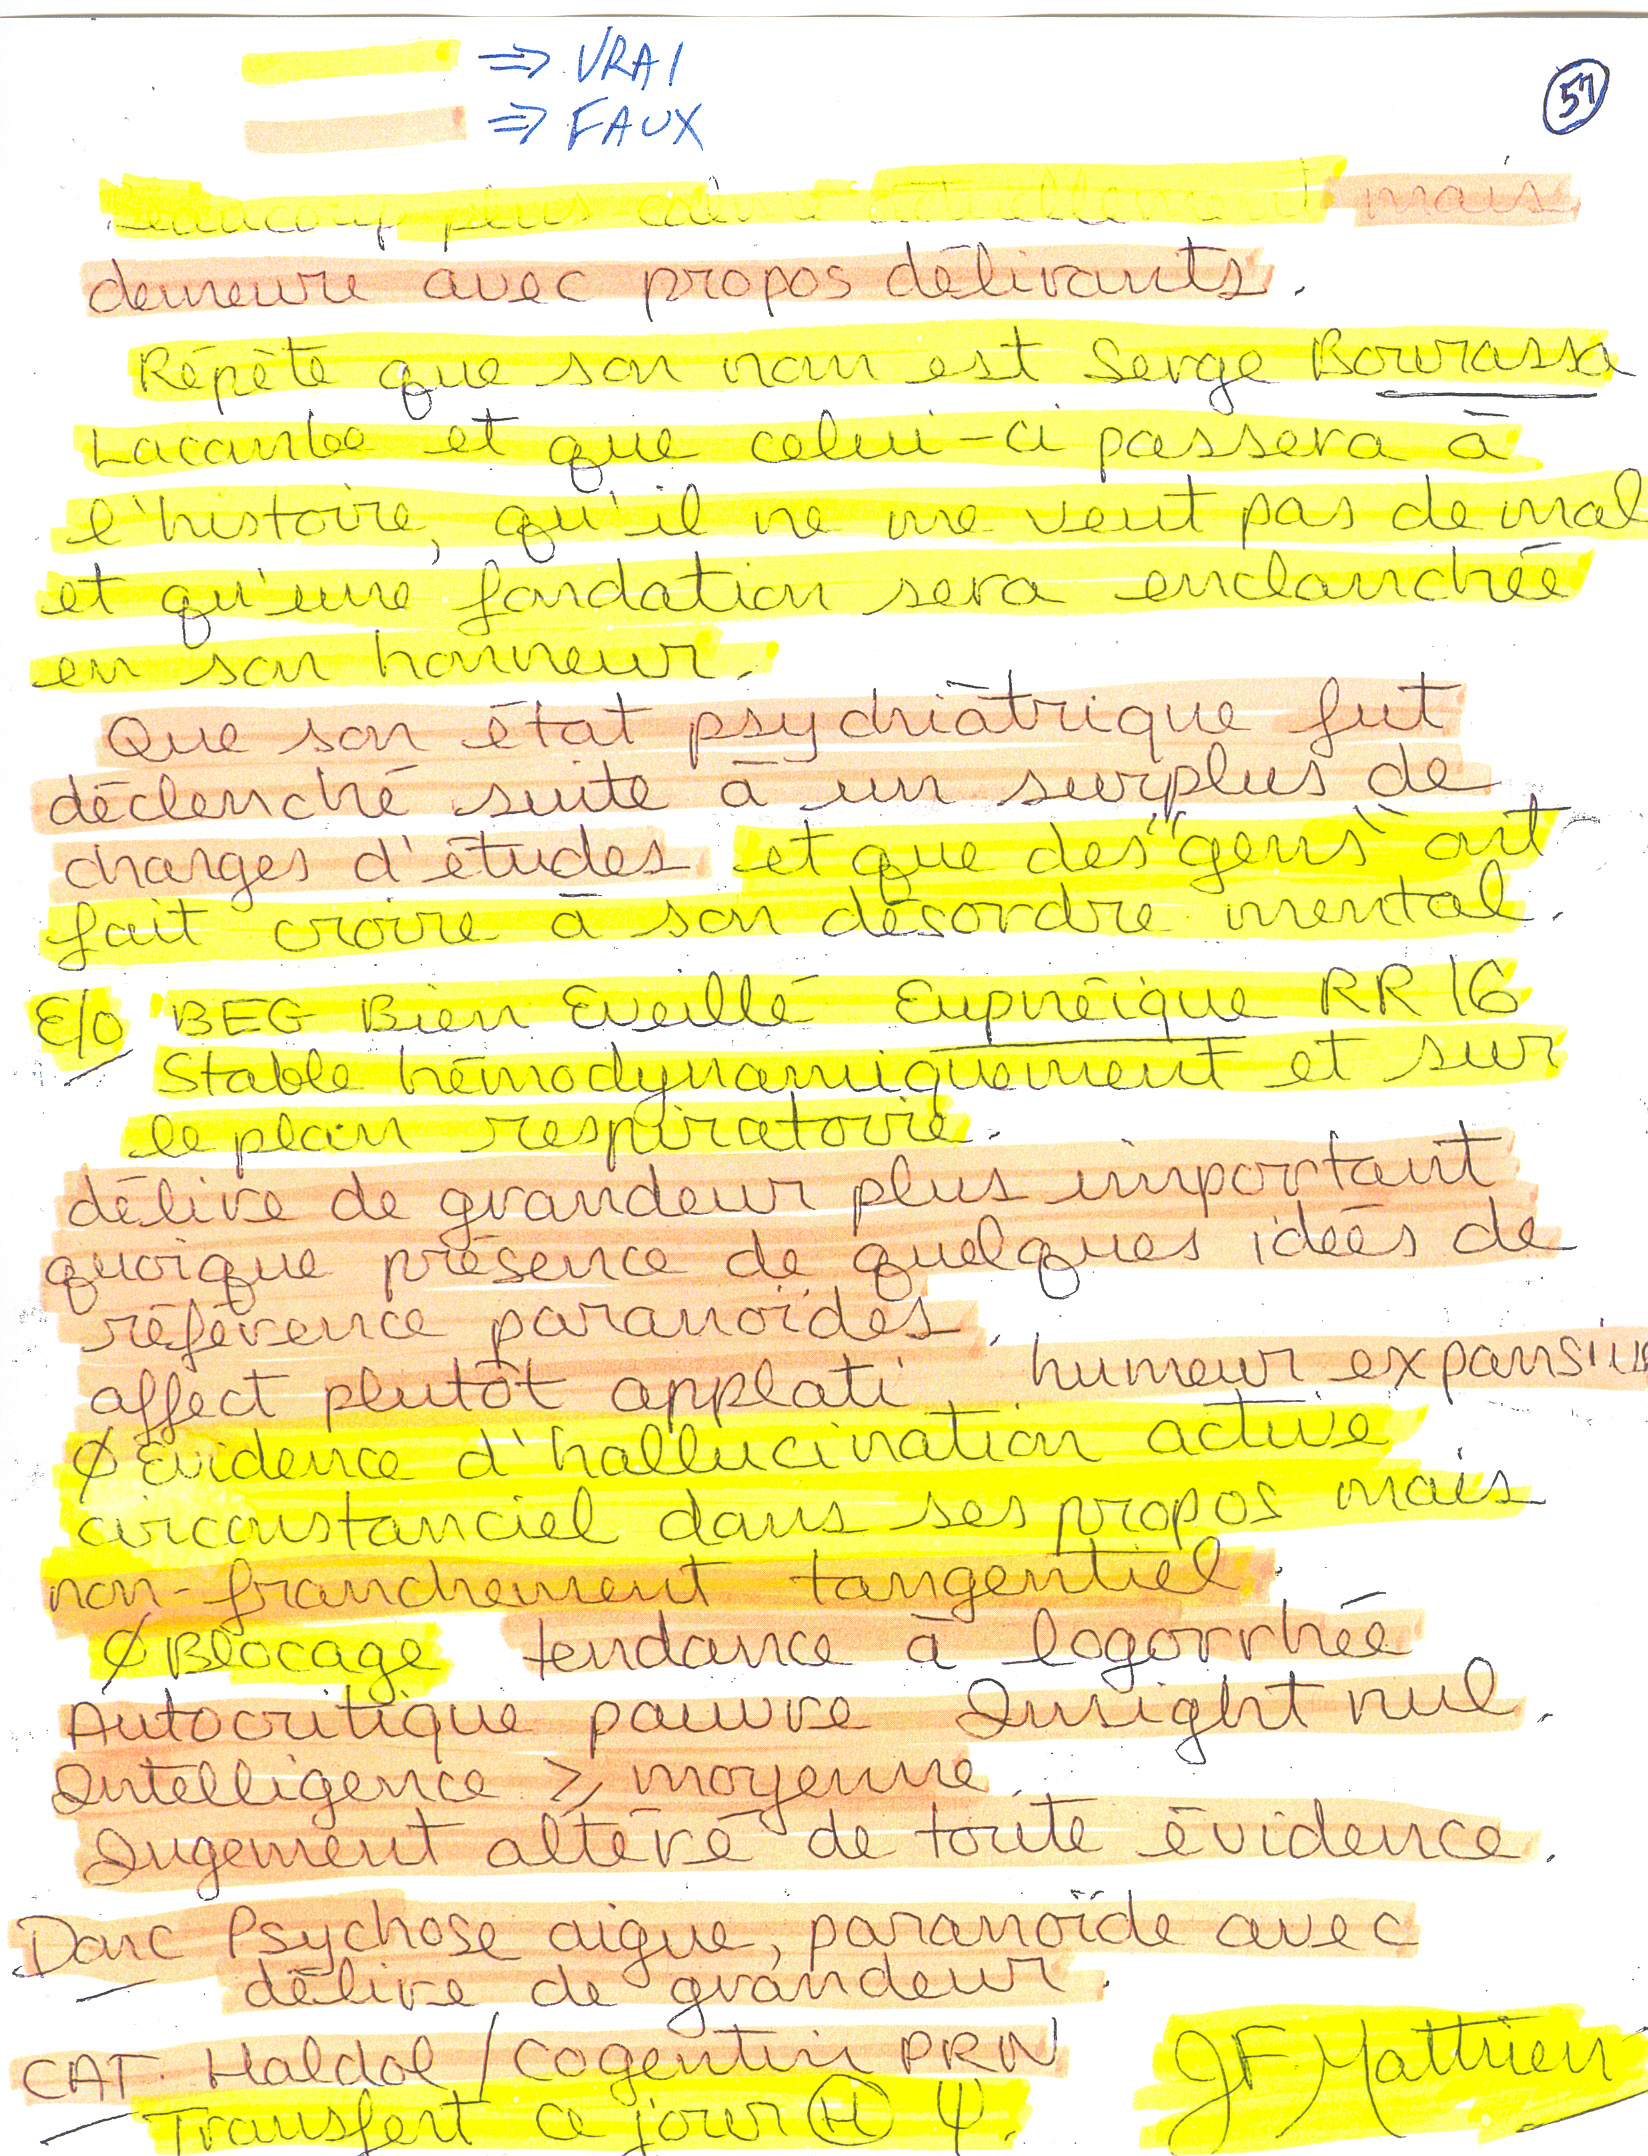 ⇒ VRAI
57
⇒ FAUX
Beaucoup plus calme actuellement mais
demeure avec propos délirants.
Répète que son nom est Serge Bourassa
Lacombe et que celui-ci passera à
l'histoire, qu'il ne me veut pas de mal
et qu'une fondation sera enclanchée
en son honneur.
Que son état psychiàtrique fut
déclenché suite à un surplus de
charges d'études et que des "gens" ont
fait croire à son désordre mental.
E/O BEG Bien Eveillé Eupnéique RR 16
Stable hémodynamiquement et sur
le plan respiratoire.
délire de grandeur plus important
quoique présence de quelques idéés de
référence paranoïdes.
affect plutôt applati humeur expansive
∅ Évidence d'hallucination active
circonstanciel dans ses propos mais
non-franchement tangentiel.
∅ Blocage tendance à logorrhée
Autocritique pauvre Insight nul.
Intelligence ≥ moyenne
Jugement altéré de toute évidence.
Donc Psychose aigue, paranoïde avec
délire de grandeur.
CAT. Haldol / Cogentin PRN
Transfert ce jour (H) Ψ.
JF Matthieu